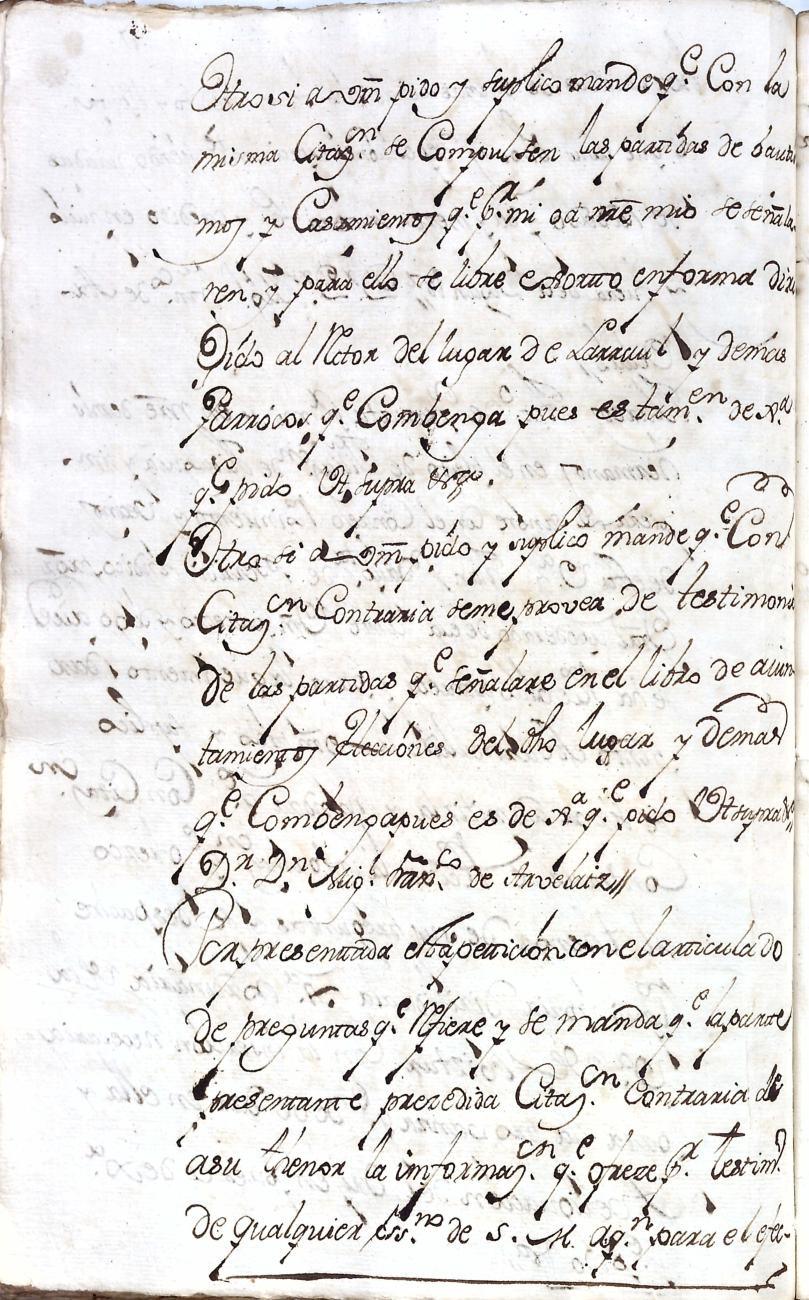 Otrosi a Vm pido y suplico mande q.e Con la
misma Citaz.on se Compulsen las partidas de bautis
mos y Casamientos q.e p.r mi o a nre mio se señala
ren, y para ello se libre exsorto en forma diri
Dido al Rctor del lugar de Larraul y demas
Parrocos q.e Combenga pues es tam.en de Xa
q.e pido Ut supra &
Otro si a Vm pido y suplico mande q.e Con
Citaz.on Contraria seme provea de testimonio
de las partidas q.e señalare en el libro de aiun
tamientos Elecciónes del dho lugar y demas
q.e Combenga pues es de Xa q.e pido Ut supra &
D.n D.n Mig.l Fran.co de Arvelaiz //
Por presentada esta petición con el articulado
de preguntas q.e Refiere y se manda q.e la parte
presentante prezedida Citaz.on Contraria de
a su thenor la imformaz.on q.e ofreze p.r testim.o
de qualquier ess.no de S. M. aq.n para el efec-